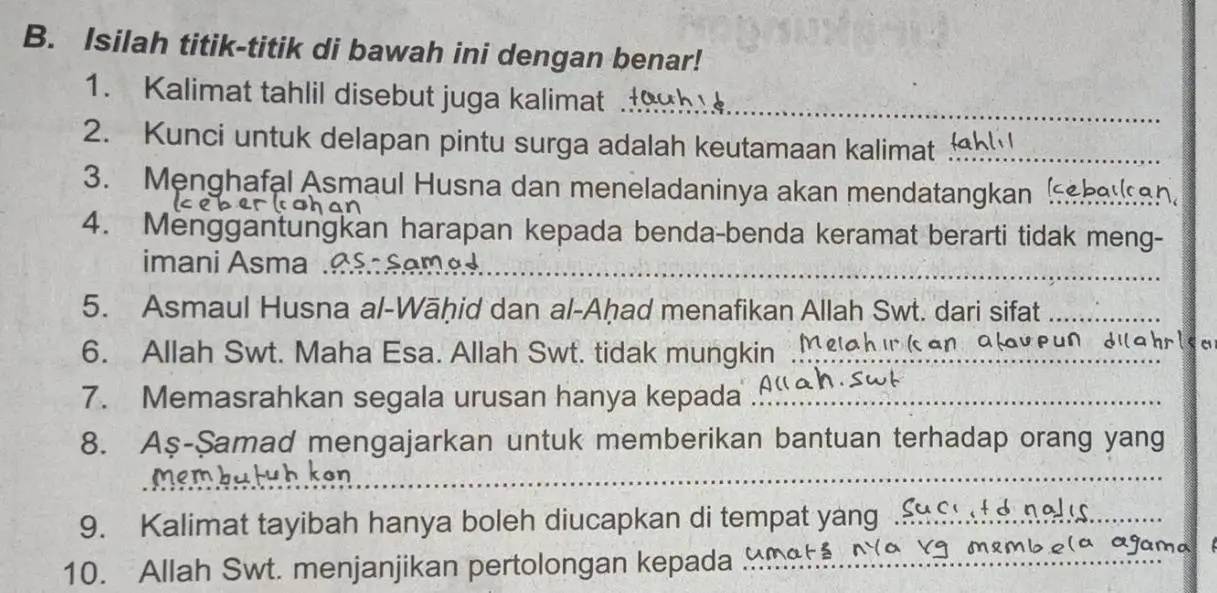 B. Isilah titik-titik di bawah ini dengan benar!
1. Kalimat tahlil disebut juga kalimat tauhid
2. Kunci untuk delapan pintu surga adalah keutamaan kalimat tahlil
3. Menghafal Asmaul Husna dan meneladaninya akan mendatangkan kebaikan,
keberkahan
4. Menggantungkan harapan kepada benda-benda keramat berarti tidak meng-
imani Asma as-samad
5. Asmaul Husna al-Wāḥid dan al-Aḥad menafikan Allah Swt. dari sifat ...............
6. Allah Swt. Maha Esa. Allah Swt. tidak mungkin Melahirkan ataupun dilahrkan
7. Memasrahkan segala urusan hanya kepada Allah.swt
8. Aṣ-Ṣamad mengajarkan untuk memberikan bantuan terhadap orang yang
membutuhkan
9. Kalimat tayibah hanya boleh diucapkan di tempat yang suci, td najis
10. Allah Swt. menjanjikan pertolongan kepada umat nya yg membela agama